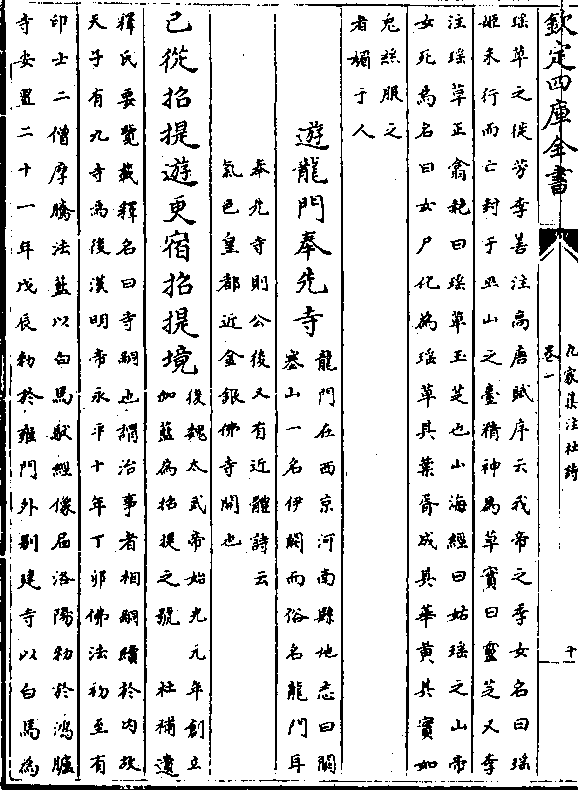 欽定四庫全書
九家集注杜詩
卷一
十
瑶草之徒芳李善注高唐賦序云我帝之季女名曰瑶
姬未行而亡封于巫山之臺精神為草實曰靈芝又李
注瑶草正翕赩曰瑶草玉芝也山海經曰姑瑶之山帝
女死焉名曰女尸化為瑶草其葉胥成其華黄其實如
兎絲服之
者媚于人
遊龍門奉先寺
龍門在西京河南縣地志曰闕
塞山一名伊闕而俗名龍門耳
奉先寺則公後又有近體詩云
氣色皇都近金銀佛寺開也
已從招提遊更宿招提境
後魏太武帝始光元年創立
伽藍為招提之號
杜補遺
釋氏要覽載釋名曰寺嗣也謂治事者相嗣續於内故
天子有九寺焉後漢明帝永平十年丁卯佛法初至有
印士二僧摩騰法蘭以白馬馱經像届洛陽勑於鴻臚
寺安置二十一年戊辰勑於雍門外别建寺以白馬為